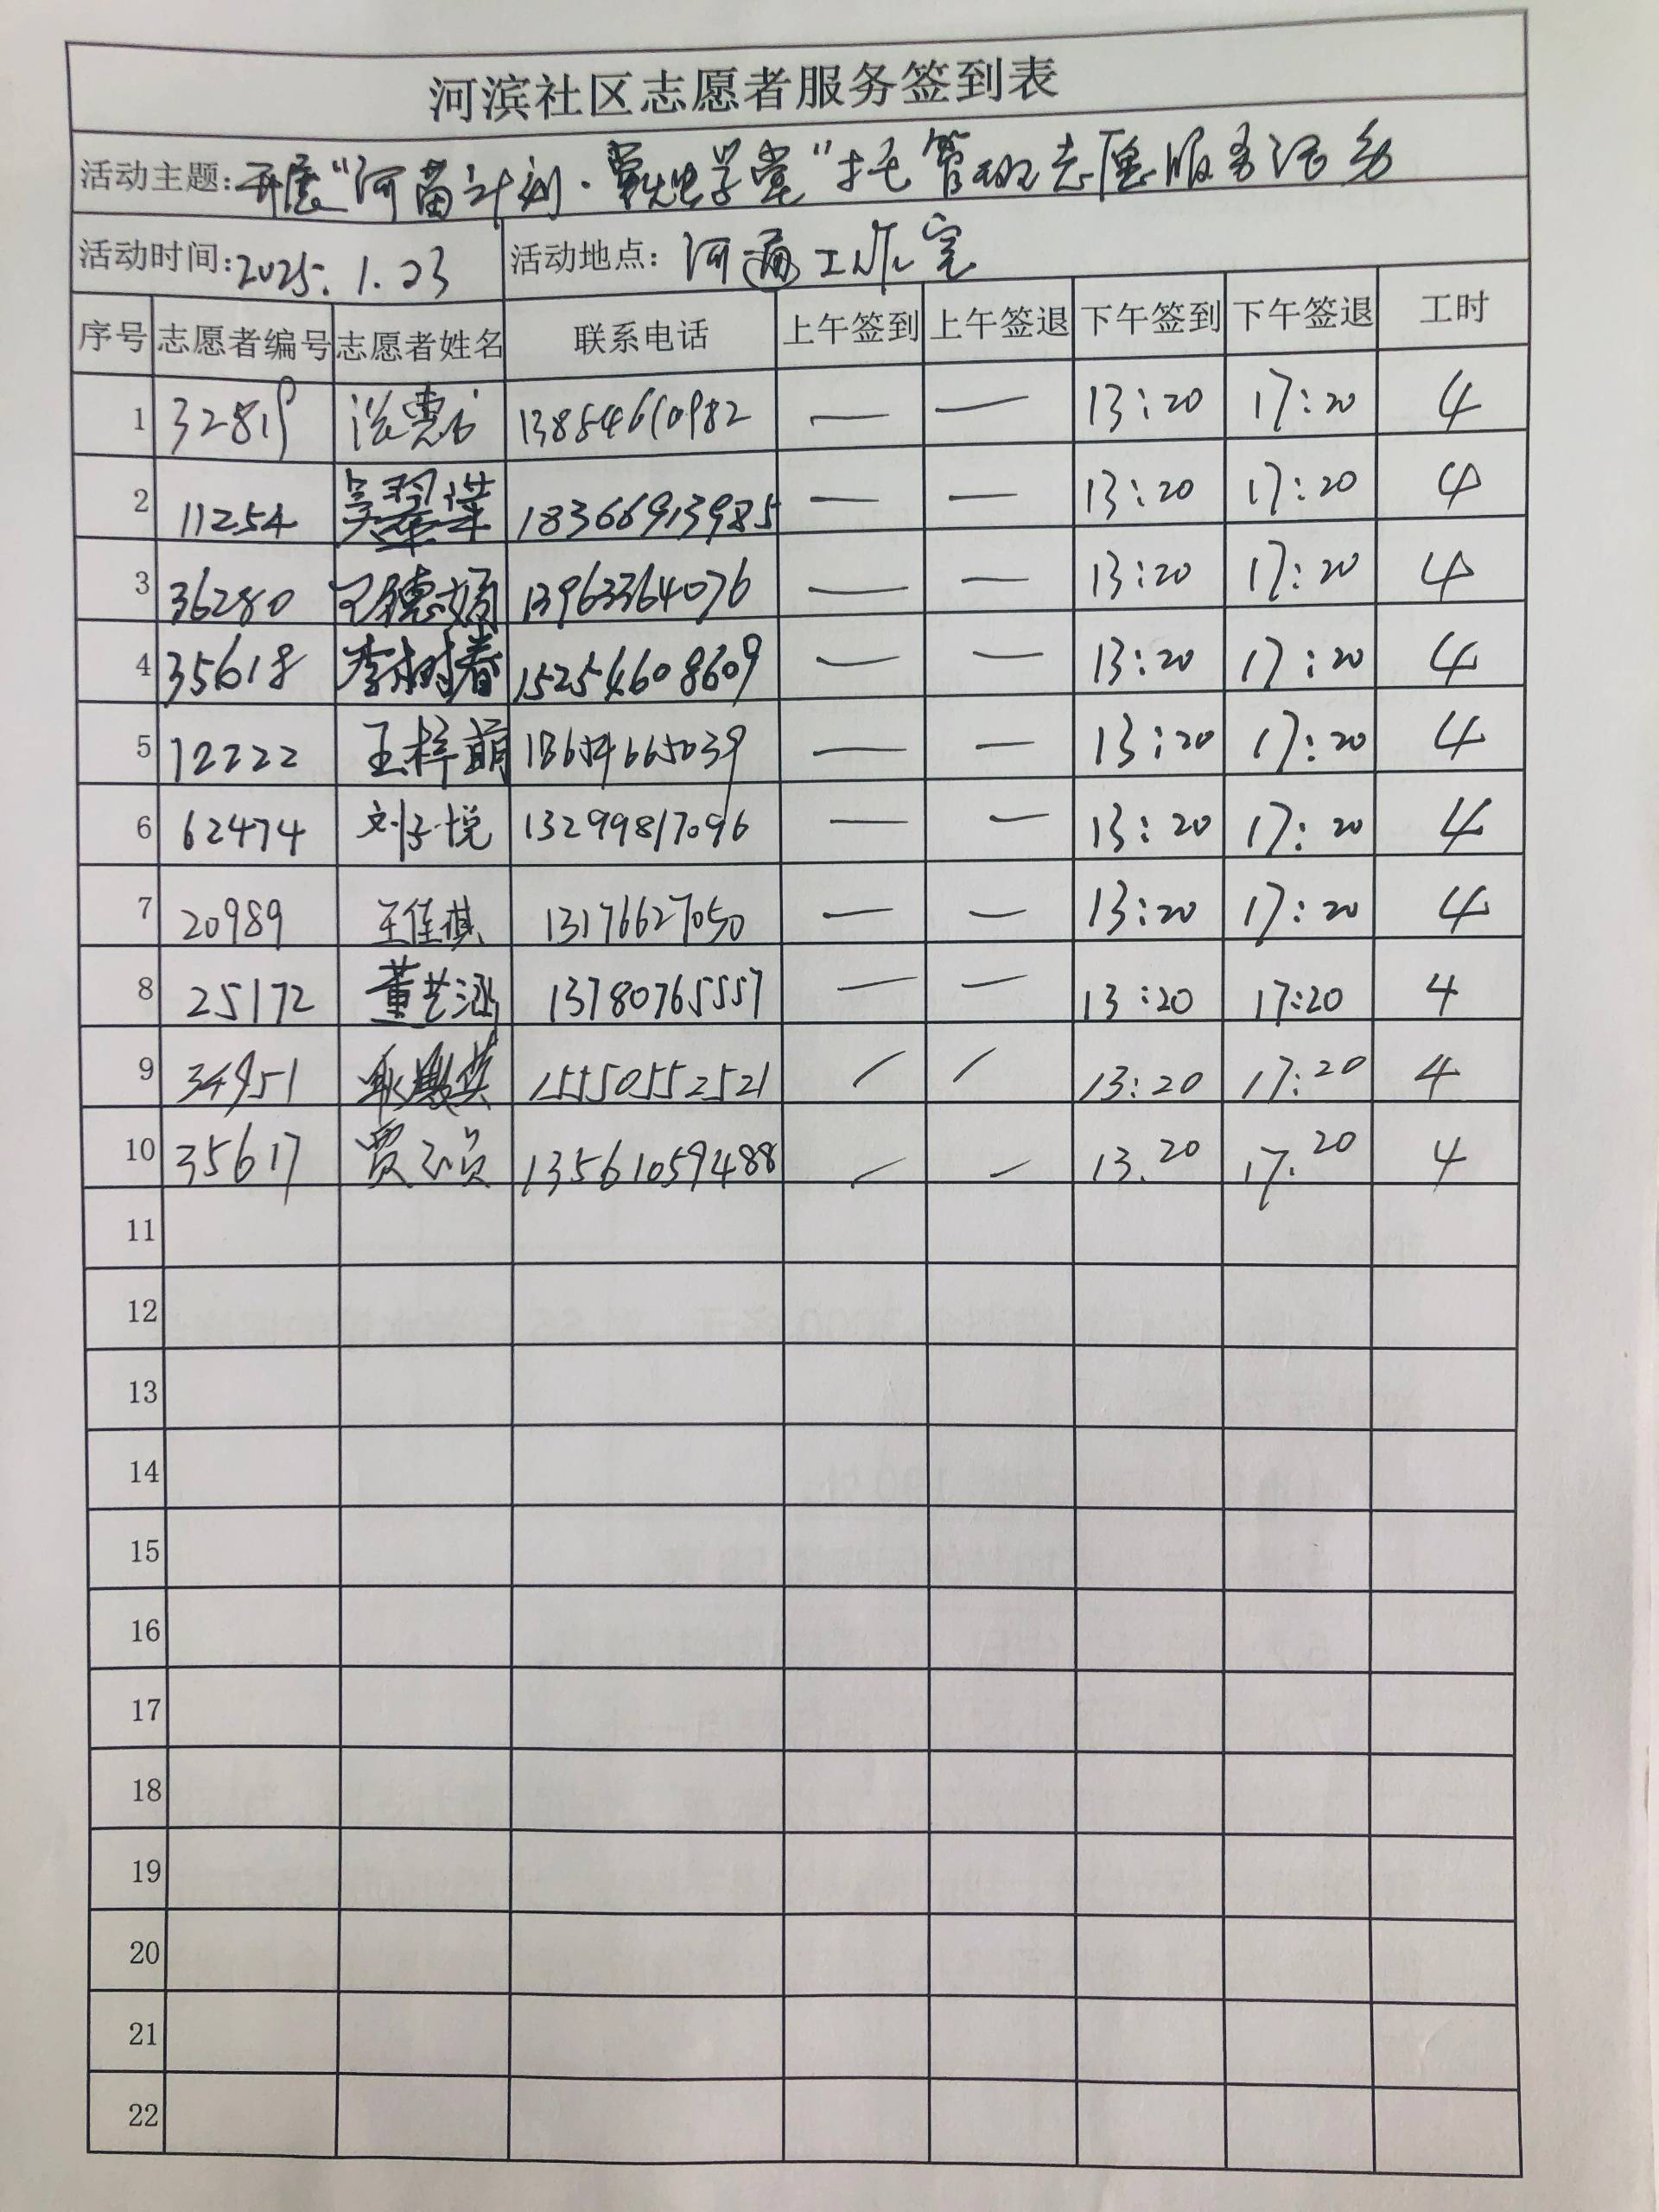 河滨社区志愿者服务签到表
活动主题: 开展"河苗计划·萤火虫学堂"托管班志愿服务活动
活动时间: 2025.1.23 活动地点: 河滨工作室
序号 志愿者编号 志愿者姓名 联系电话 上午签到 上午签退 下午签到 下午签退 工时
1 32819 13854610982 — — 13:20 17:20 4
2 11254 18366913985 — — 13:20 17:20 4
3 36280 13963364076 — — 13:20 17:20 4
4 35618 李树春 15254608609 — — 13:20 17:20 4
5 12222 王梓萌 18654665039 — — 13:20 17:20 4
6 62474 刘子悦 13299817096 — — 13:20 17:20 4
7 20989 王佳琪 13176627050 — — 13:20 17:20 4
8 25172 董艺涵 13780765557 — — 13:20 17:20 4
9 34951 15550552521 / / 13:20 17:20 4
10 35617 13561059488 — — 13.20 17.20 4
11
12
13
14
15
16
17
18
19
20
21
22